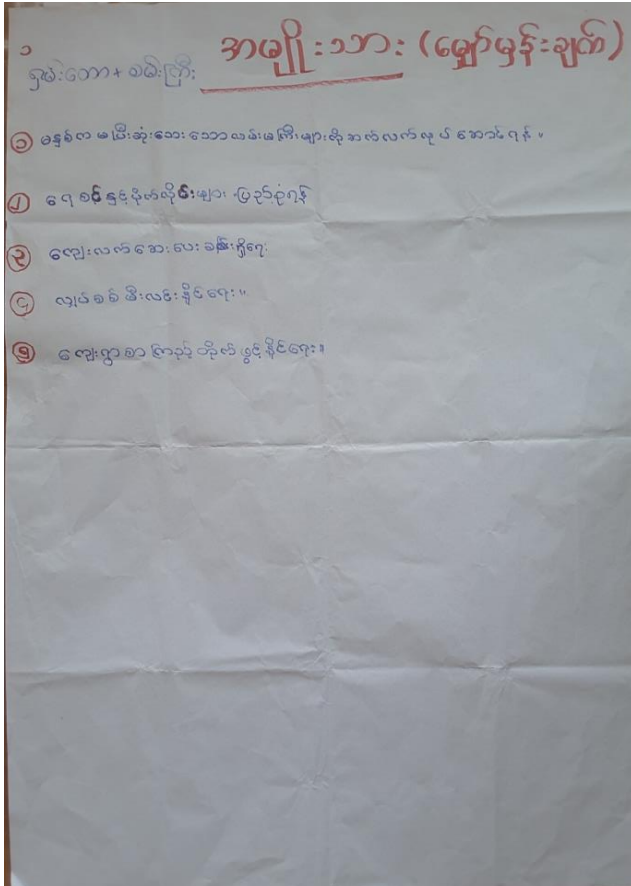 ၁
အမျိုးသား (မျှော်မှန်းချက်)
ရှမ်းတော + ခမ်းကြီး
၁ မနှစ်က မပြီးဆုံးသေးသောလမ်းမကြီးများကို ဆက်လက်လုပ်ဆောင်ရန်။
၂ ရေစင်နှင့်ပိုက်လိုင်းများ ပြည့်စုံရန်
၃ ကျေးလက်ဆေးပေးခန်းရှိရေး
၄ လျှပ်စစ်မီးလင်းနိုင်ရေး။
၅ ကျေးရွာစာကြည့်တိုက်ဖွင့်နိုင်ရေး။